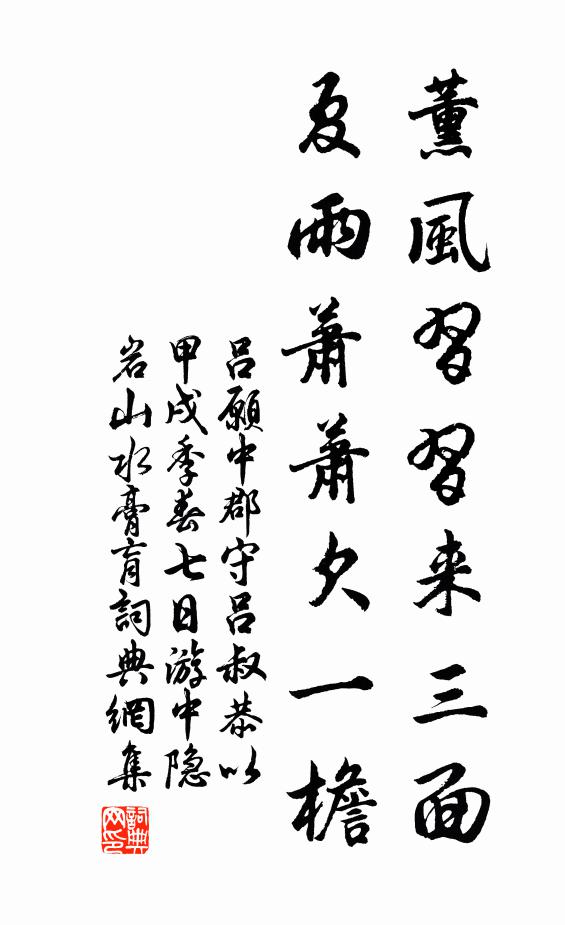 薰風習習来三面
夏雨蕭蕭欠一檐
呂願中郡守呂叔恭以
甲戌季春七日游中隐
岩山水膏肓詞典網集
詞典
网印